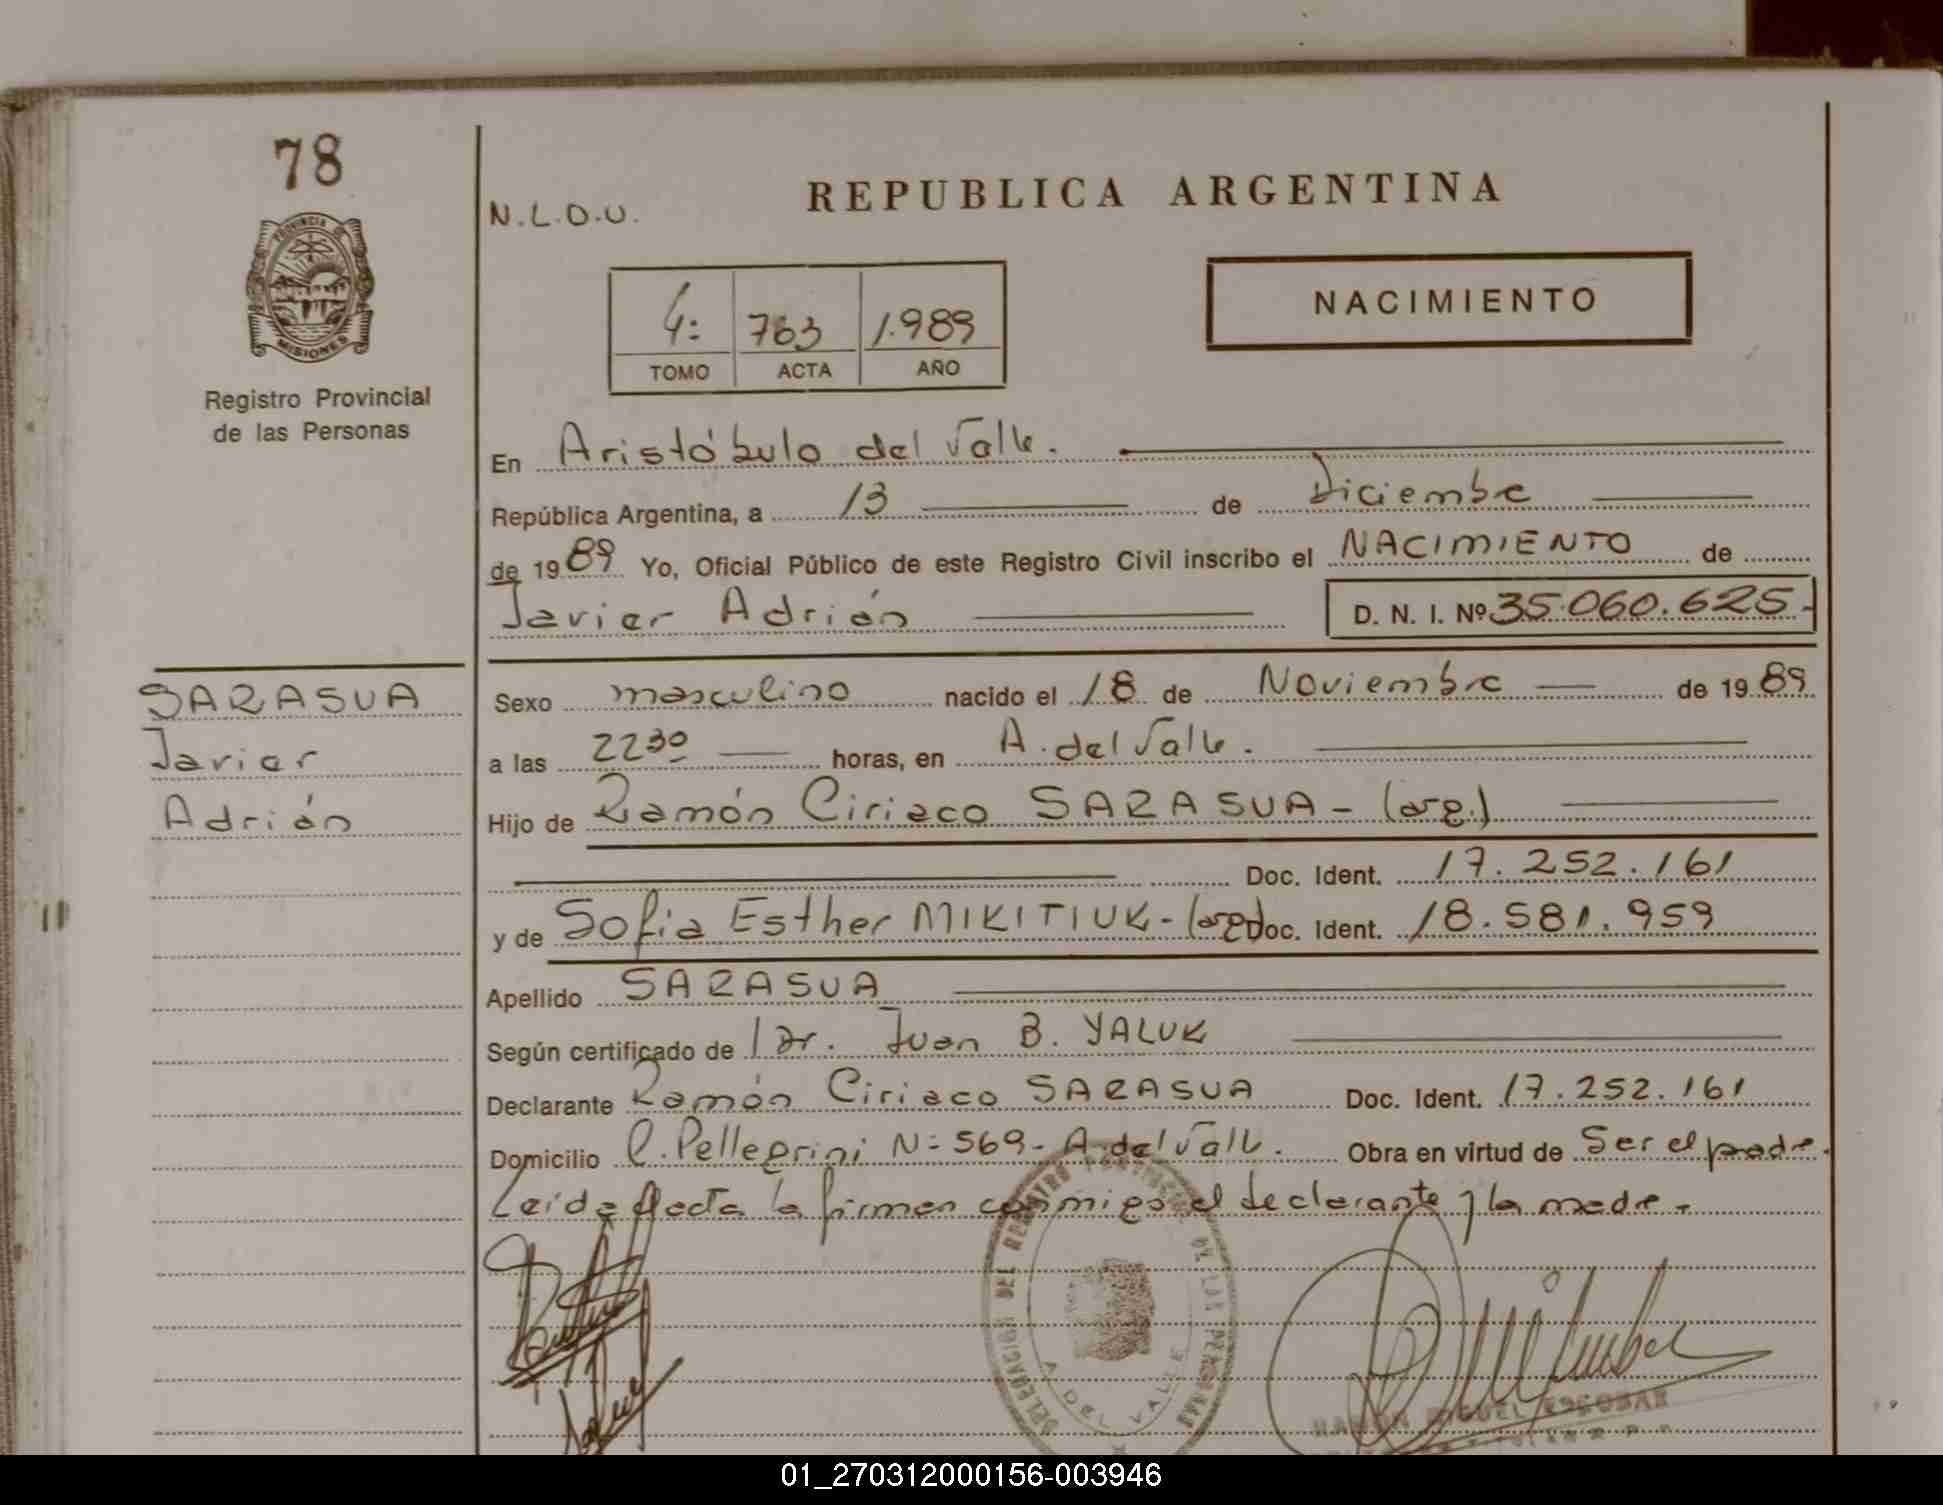 78
PROVINCIA DE
MISIONES
Registro Provincial
de las Personas
N.L.O.U.
REPUBLICA ARGENTINA
NACIMIENTO
4: 763 1.989
TOMO ACTA AÑO
En Aristóbulo del Valle.
República Argentina, a 13 de Diciembre
de 1989 Yo, Oficial Público de este Registro Civil inscribo el NACIMIENTO de
Javier Adrián D. N. I. Nº 35.060.625.-
SARASUA
Javier
Adrián
Sexo masculino nacido el 18 de Noviembre de 1989
a las 2230 horas, en A. del Valle.
Hijo de Ramón Ciriaco SARASUA - (arg.)
Doc. Ident. 17.252.161
y de Sofia Esther MIKITIUK - (arg) Doc. Ident. 18.581.959
Apellido SARASUA
Según certificado de l Dr. Juan B. YALUK
Declarante Ramón Ciriaco SARASUA Doc. Ident. 17.252.161
Domicilio C. Pellegrini N= 569 - A. del Valle. Obra en virtud de Ser el padre.
Leida el acta la firman conmigo el declarante y la madre.
DELEGACION DEL REGISTRO PROVINCIAL DE LAS PERSONAS
A. DEL VALLE
RAMON MIGUEL ESCOBAR
01_270312000156-003946